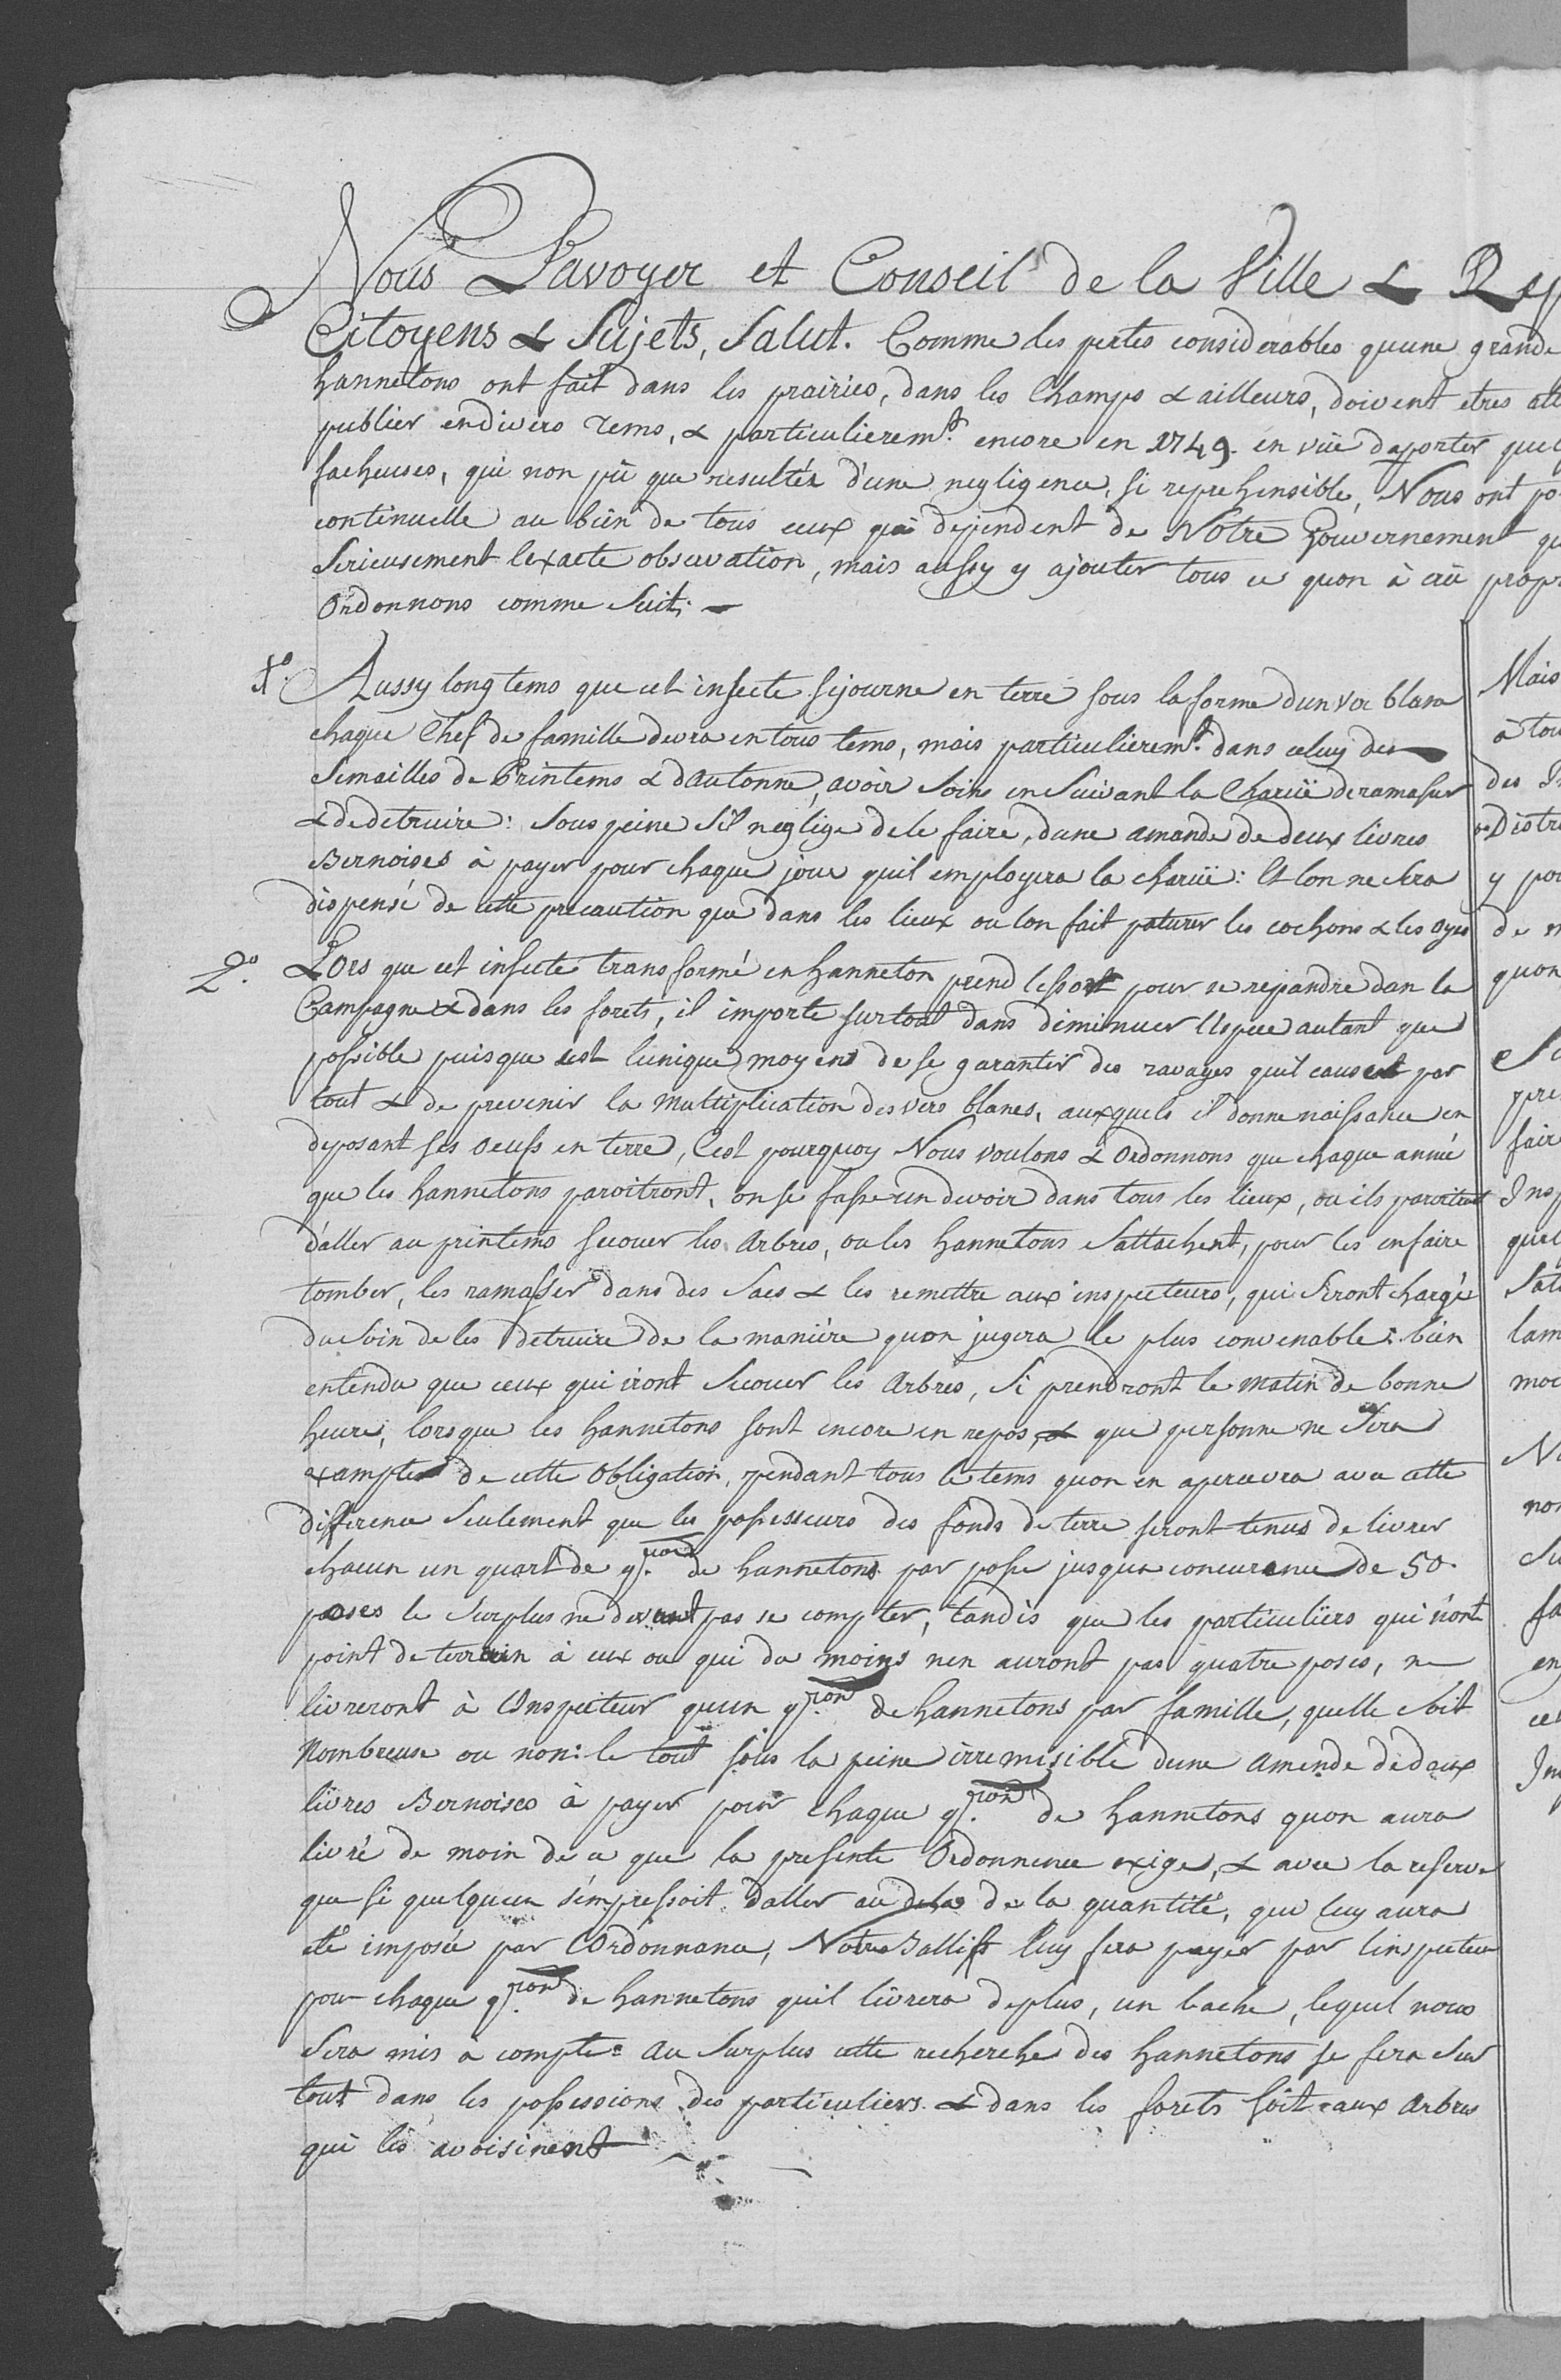 Nous Lavoyer et Conseil de la Ville & Rep
Citoyens & Sujets, Salut. Comme les pertes considerables qu'une grande
hannetons ont fait dans les prairies, dans les Champs & ailleurs, doivent etres att
publier en divers tems, & particulierem.t encore en 1749. en vüe daporter quel
facheuses, qui non pû que resultér d'une negligence, si reprehensible, Nous ont po
continuelle au bien de tous ceux qui dependent de Notre Gouvernement qu
Serieusement lexacte observation, mais aussy y ajouter tous ce quon à crû propr
Ordonnons comme Suit. –
1.o Aussy long tems que cet insecte sejourne en terre sous la forme dun ver blanc
chaque Chef de famille devra en tous tems, mais particulierem.t dans celuy des
Semailles de Printems & dautonne, avoir Soins en Suivant la Charüe deramasser
& de detruire: Sous peine Sil neglige de le faire, dune amande de deux livres
Bernoises à payer pour chaque jour quil employera la charüe: Et lon ne Sera
dispensé de cette precaution que dans les lieux ou lon fait paturer les cochons & les oyes
2.o Lors que cet insecte transformé en hanneton prend lessort pour se repandre dan la
Campagne & dans les forets, il importe surtout dans diminuer l'espece autant que
possible puisque cest lunique moyens de se garantir des ravages quil causent par
tout & de prevenir la multiplication des vers blancs, auxquels il donne naissance en
deposant ses oeufs en terre, Cest pourquoy Nous voulons & Ordonnons que chaque année
que les hannetons paroitront, on se fasse un devoir dans tous les lieux, ou ils paroitront
d'aller au printems secouer les Arbres, ou les hannetons Sattachent, pour les en faire
tomber, les ramasser dans des Sacs & les remettre aux inspecteurs, qui Seront chargé
du Soin de les detruire de la maniére quon jugera le plus convenable: bien
entendu que ceux qui iront Secouer les Arbres, Si prendront le matin de bonne
heure, lorsque les hannetons sont encore en repos, & que personne ne Sera
exampter de cette Obligation, pendant tous le tems quon en apercevra avec cette
difference Seulement que les possesseurs des fonds de terre seront tenus de livrer
chacun un quart de q.ron de hannetons par pose jusqua concurance de 50.
poses le Surplus ne devant pas se compter, tandis que les particuliers qui n'ont
point de terrein à eux ou qui du moins nen auront pas quatre poses, ne
livreront à l'Inspecteur quun q.ron de hannetons par famille, quelle Soit
Nombreuse ou non: le tout sous la peine irremisible dune Amende de deux
livres Bernoises à payer pour chaque q.ron de hannetons quon aura
livré de moin de ce que la presente Ordonnence exige, & avec la reserve
que si quelquun s'empressoit daller au dela de la quantité, que luy aura
été imposée par l'Ordonnance, Notre Ballift luy fera payer par linspecteur
pour chaque q.ron de hannetons quil livrera deplus, un bache, lequel nous
Sera mis a compte: au Surplus cette recherche des hannetons se fera Sur
tout dans les possessions des particuliers & dans les forets soit aux Arbres
qui les avoisinent
Mais
à tou
des
Distri
y pou
de
quon
pre
fair
Insp
quel
lam
moi
non
fa
en